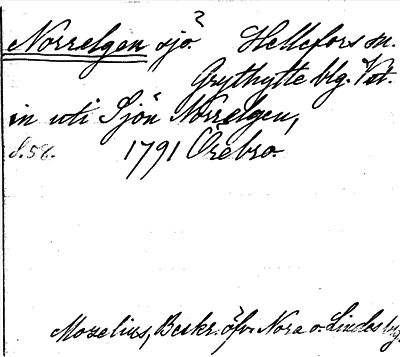 Norrelgen sjö ? Hellefors sn.
Grythytte blg. Vst.
in uti Sjön Norrelgen,
s. 58. 1791 Örebro.
Mozelius, Beskr. öfv. Nora o. Lindes by